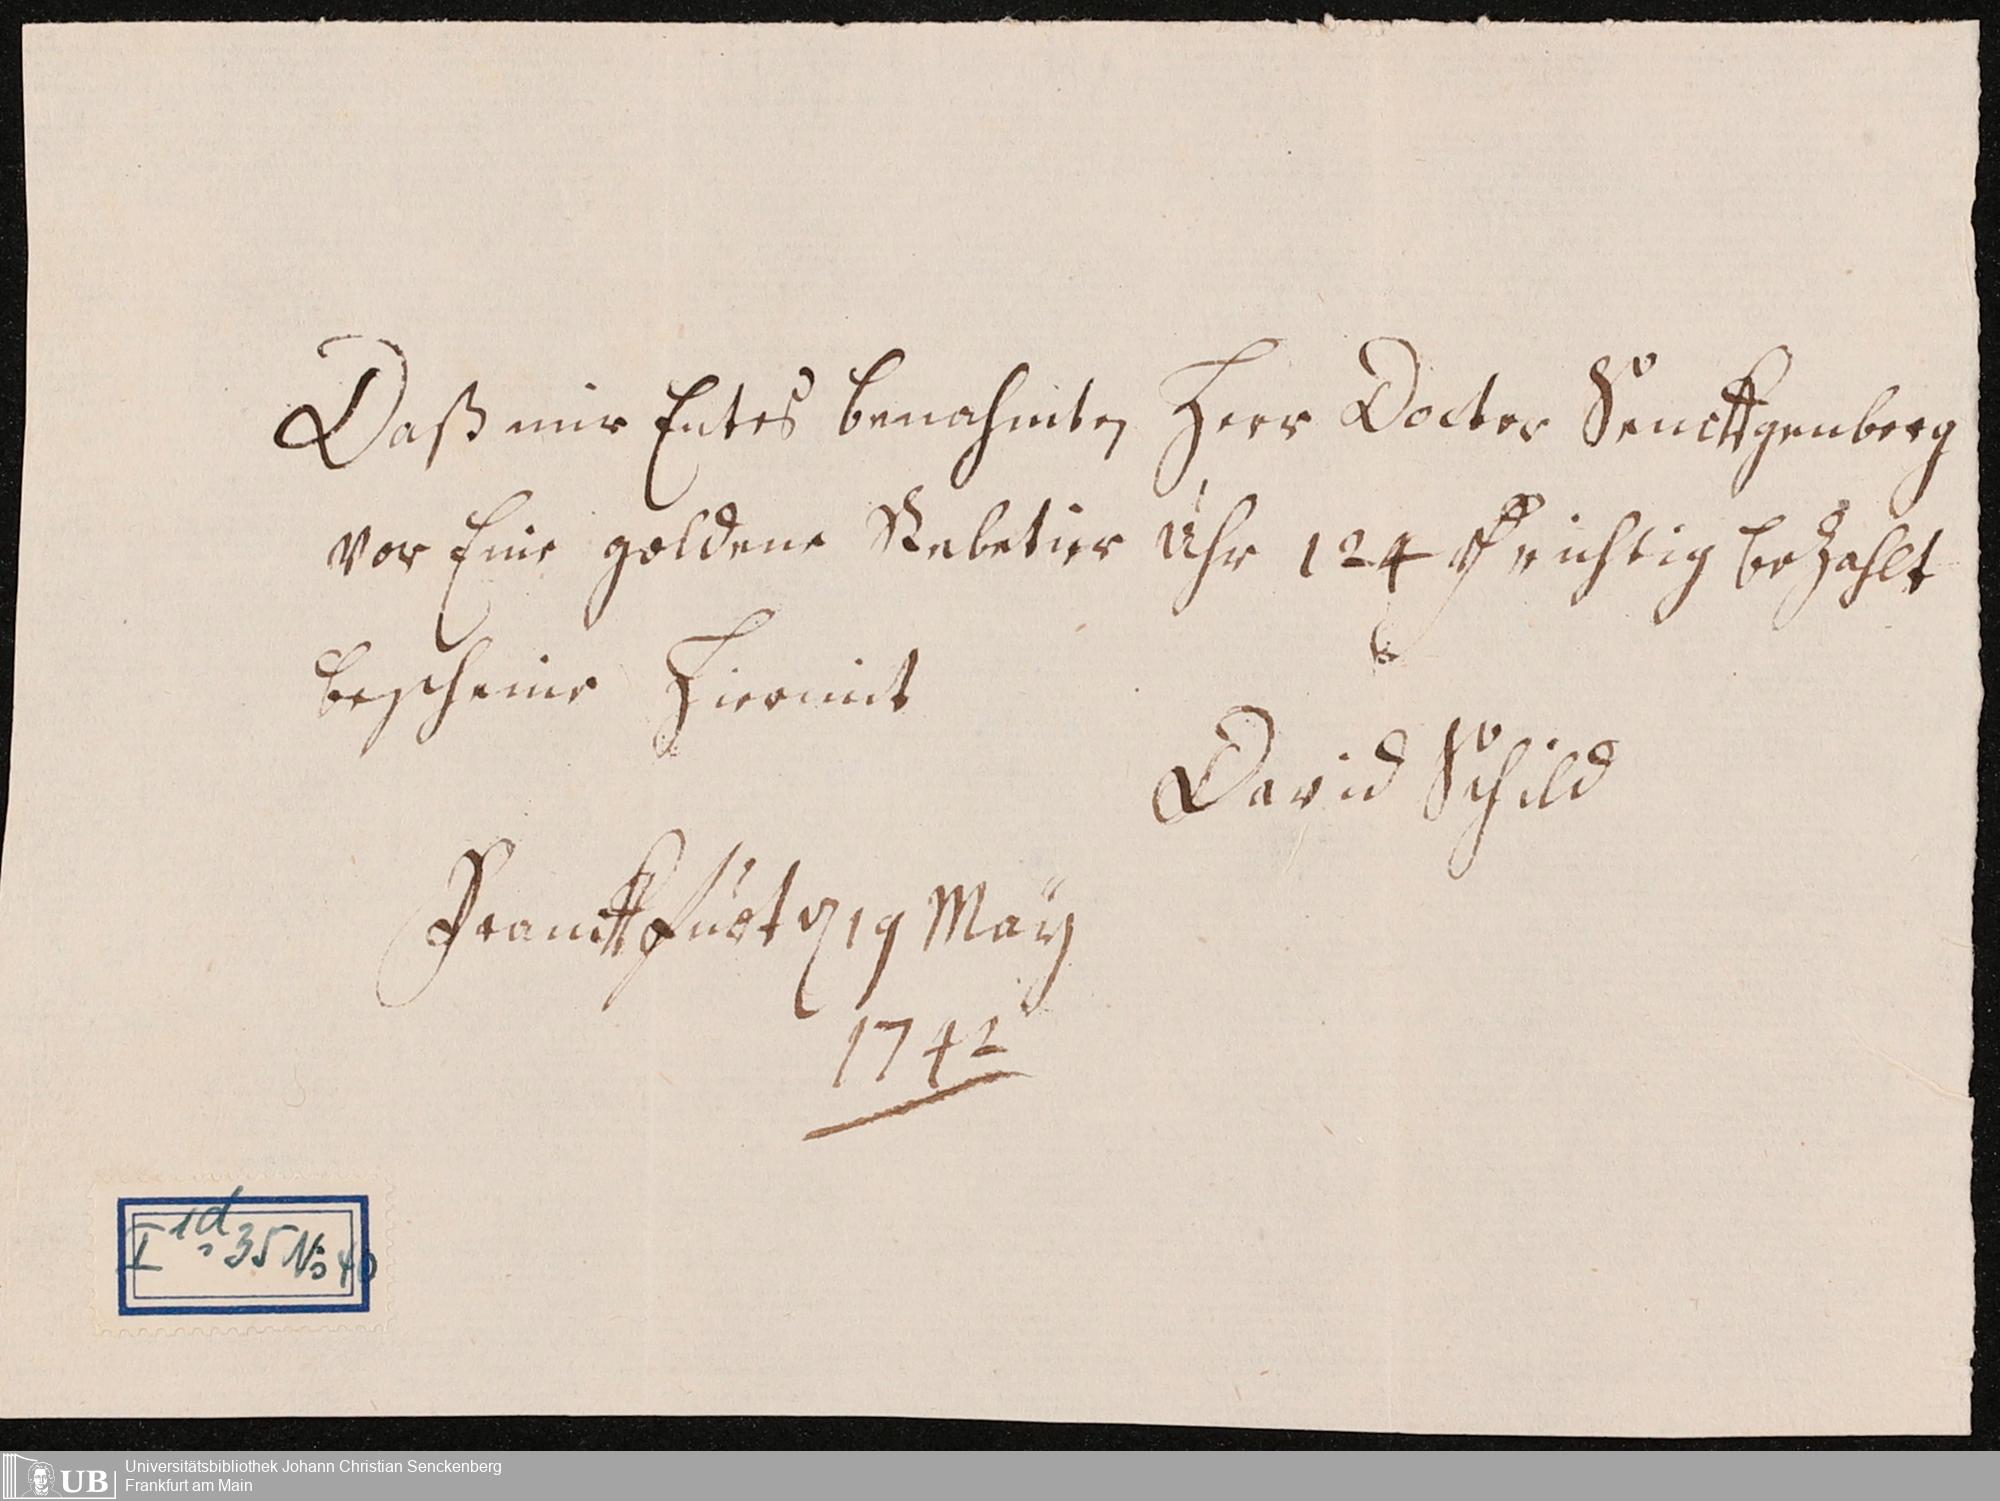 Daß mir Entes benahmten Herr Docter Senckgenberg
vor Eine goldene Rebetier Uhr 124 f richtig bezahlt
bescheine Hiermit
David Schild
Franckfurt 19 Maÿ
1742
I 1d 35 No 40
UB
Universitätsbibliothek Johann Christian Senckenberg
Frankfurt am Main